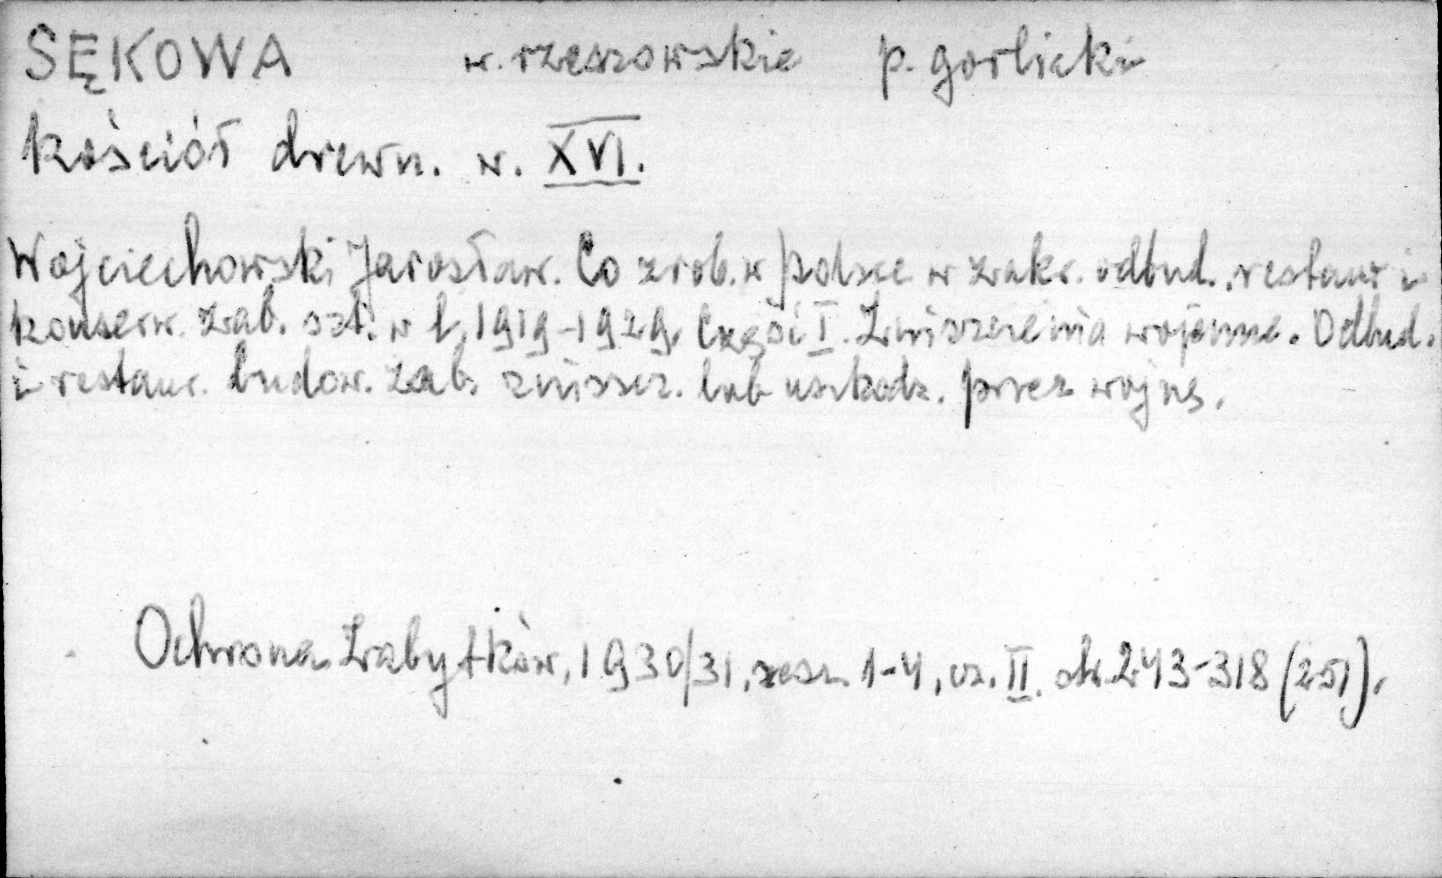 SĘKOWA w. rzeszowskie p. gorlicki
kościół drewn. w. XVI.
Wojciechowski Jarosław. Co zrob. w Polsce w zakr. odbud., restaur i
konserw. zab. szt. w l. 1919-1929. Części I. Zniszczenia wojenne. Odbud.
i restaur. budow. zab. zniszcz. lub uszkodz. przez wojnę.
Ochrona Zabytków, 1930/31, zesz. 1-4, cz. II. str. 243-318 (251).